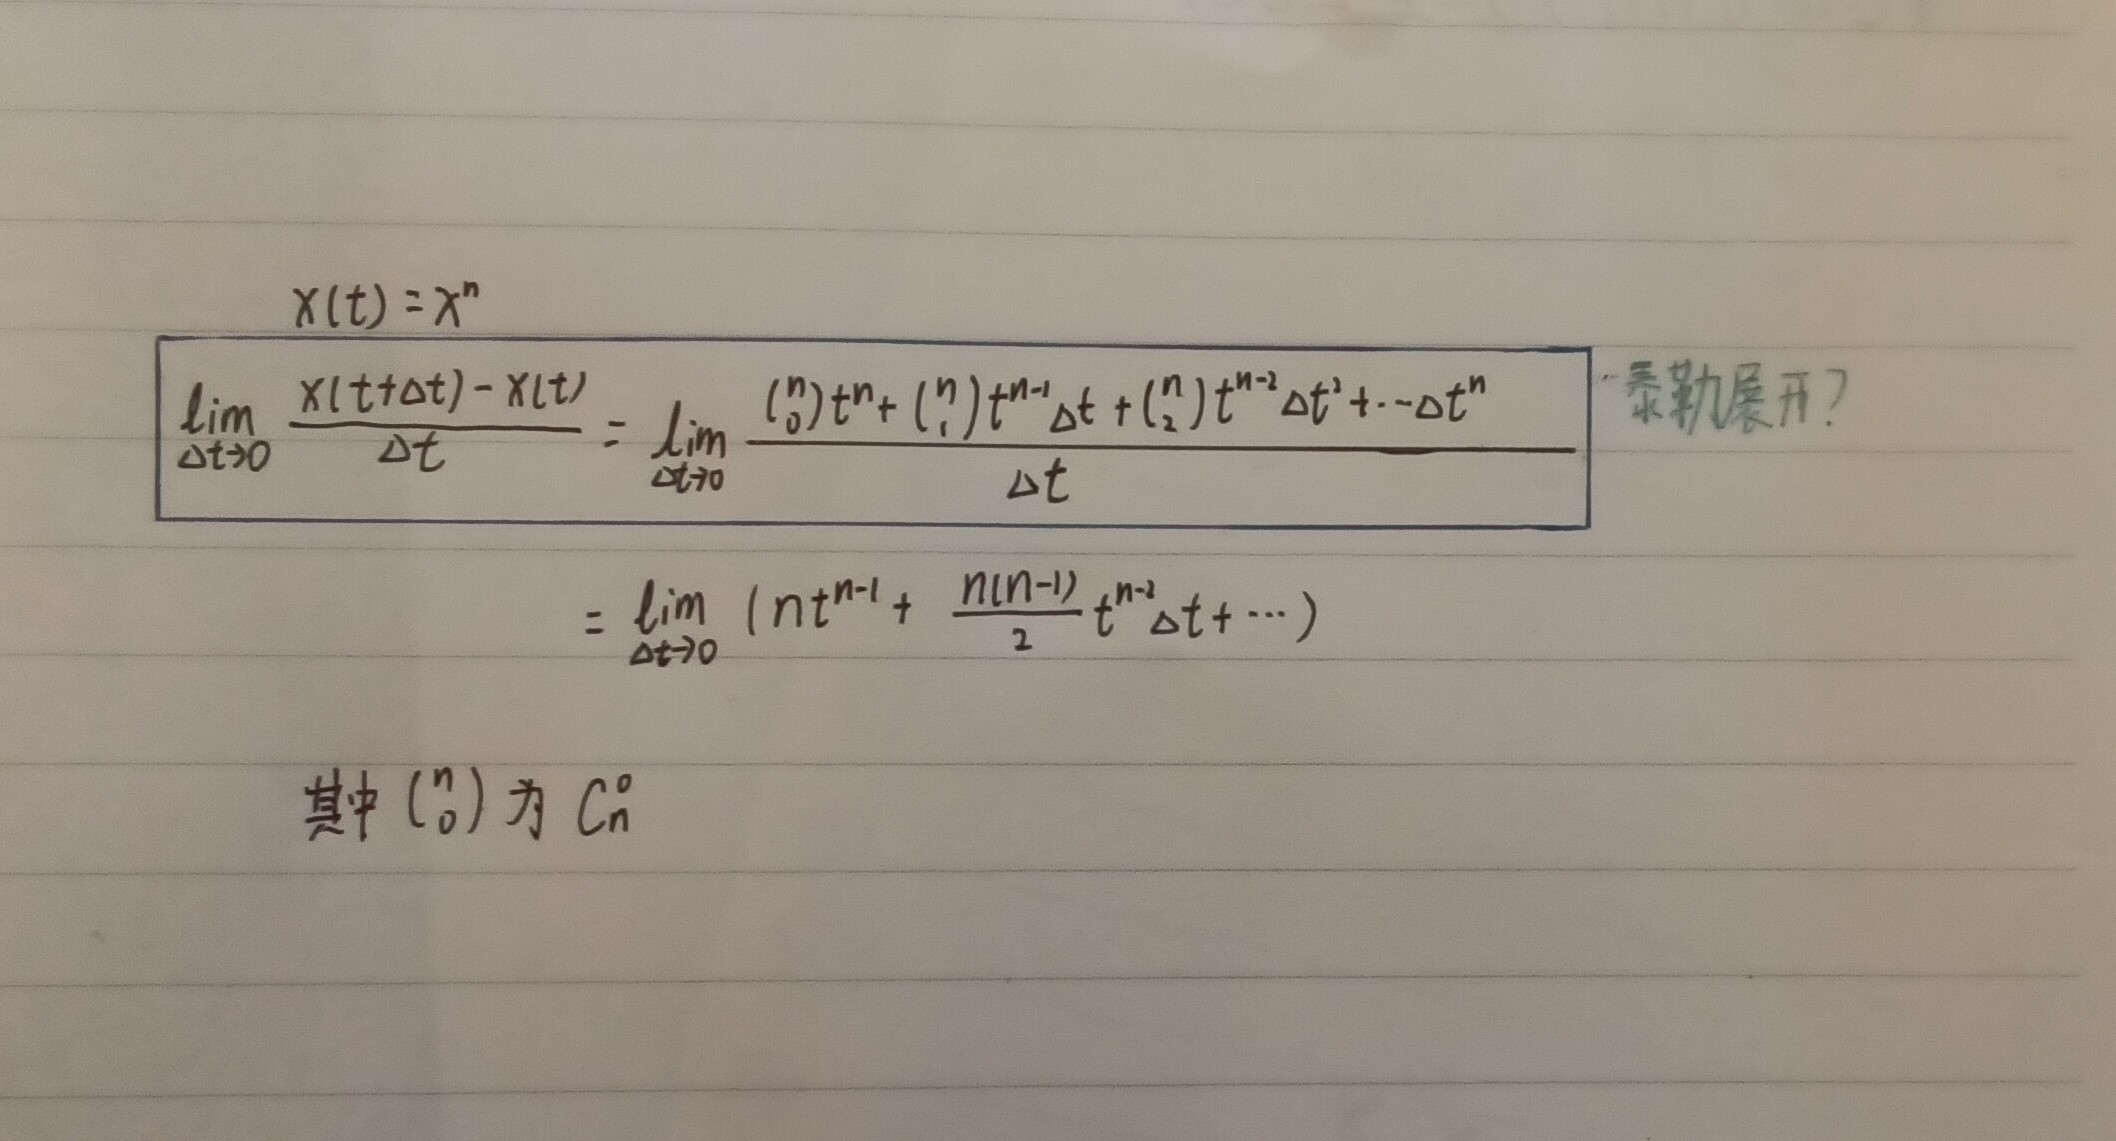 x(t) = xⁿ
lim Δt→0 (x(t+Δt) - x(t)) / Δt = lim Δt→0 ((n 0)tⁿ + (n 1)tⁿ⁻¹Δt + (n 2)tⁿ⁻²Δt² + ... Δtⁿ) / Δt 泰勒展开?
= lim Δt→0 (ntⁿ⁻¹ + n(n-1)/2 tⁿ⁻²Δt + ...)
其中 (n 0) 为 Cₙ⁰